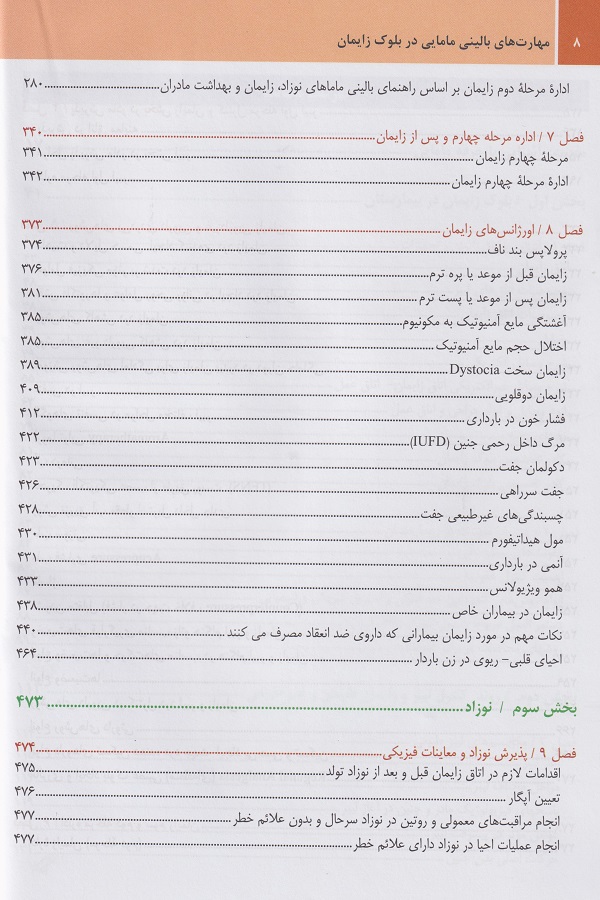 ۸ مهارت‌های بالینی مامایی در بلوک زایمان
ادارهٔ مرحلهٔ دوم زایمان بر اساس راهنمای بالینی ماماهای نوزاد، زایمان و بهداشت مادران ۲۸۰
فصل ۷ / اداره مرحله چهارم و پس از زایمان ۳۴۰
مرحلهٔ چهارم زایمان ۳۴۱
ادارهٔ مرحلهٔ چهارم زایمان ۳۴۲
فصل ۸ / اورژانس‌های زایمان ۳۷۳
پرولاپس بند ناف ۳۷۴
زایمان قبل از موعد یا پره ترم ۳۷۶
زایمان پس از موعد یا پست ترم ۳۸۱
آغشتگی مایع آمنیوتیک به مکونیوم ۳۸۵
اختلال حجم مایع آمنیوتیک ۳۸۵
زایمان سخت Dystocia ۳۸۹
زایمان دوقلویی ۴۰۹
فشار خون در بارداری ۴۱۲
مرگ داخل رحمی جنین (IUFD) ۴۲۲
دکولمان جفت ۴۲۳
جفت سرراهی ۴۲۶
چسبندگی‌های غیرطبیعی جفت ۴۲۸
مول هیداتیفورم ۴۳۰
آنمی در بارداری ۴۳۱
همو ویژیولانس ۴۳۳
زایمان در بیماران خاص ۴۳۸
نکات مهم در مورد زایمان بیمارانی که داروی ضد انعقاد مصرف می کنند ۴۴۰
احیای قلبی- ریوی در زن باردار ۴۶۴
بخش سوم / نوزاد ۴۷۳
فصل ۹ / پذیرش نوزاد و معاینات فیزیکی ۴۷۴
اقدامات لازم در اتاق زایمان قبل و بعد از نوزاد تولد ۴۷۵
تعیین آپگار ۴۷۶
انجام مراقبت‌های معمولی و روتین در نوزاد سرحال و بدون علائم خطر ۴۷۷
انجام عملیات احیا در نوزاد دارای علائم خطر ۴۷۷